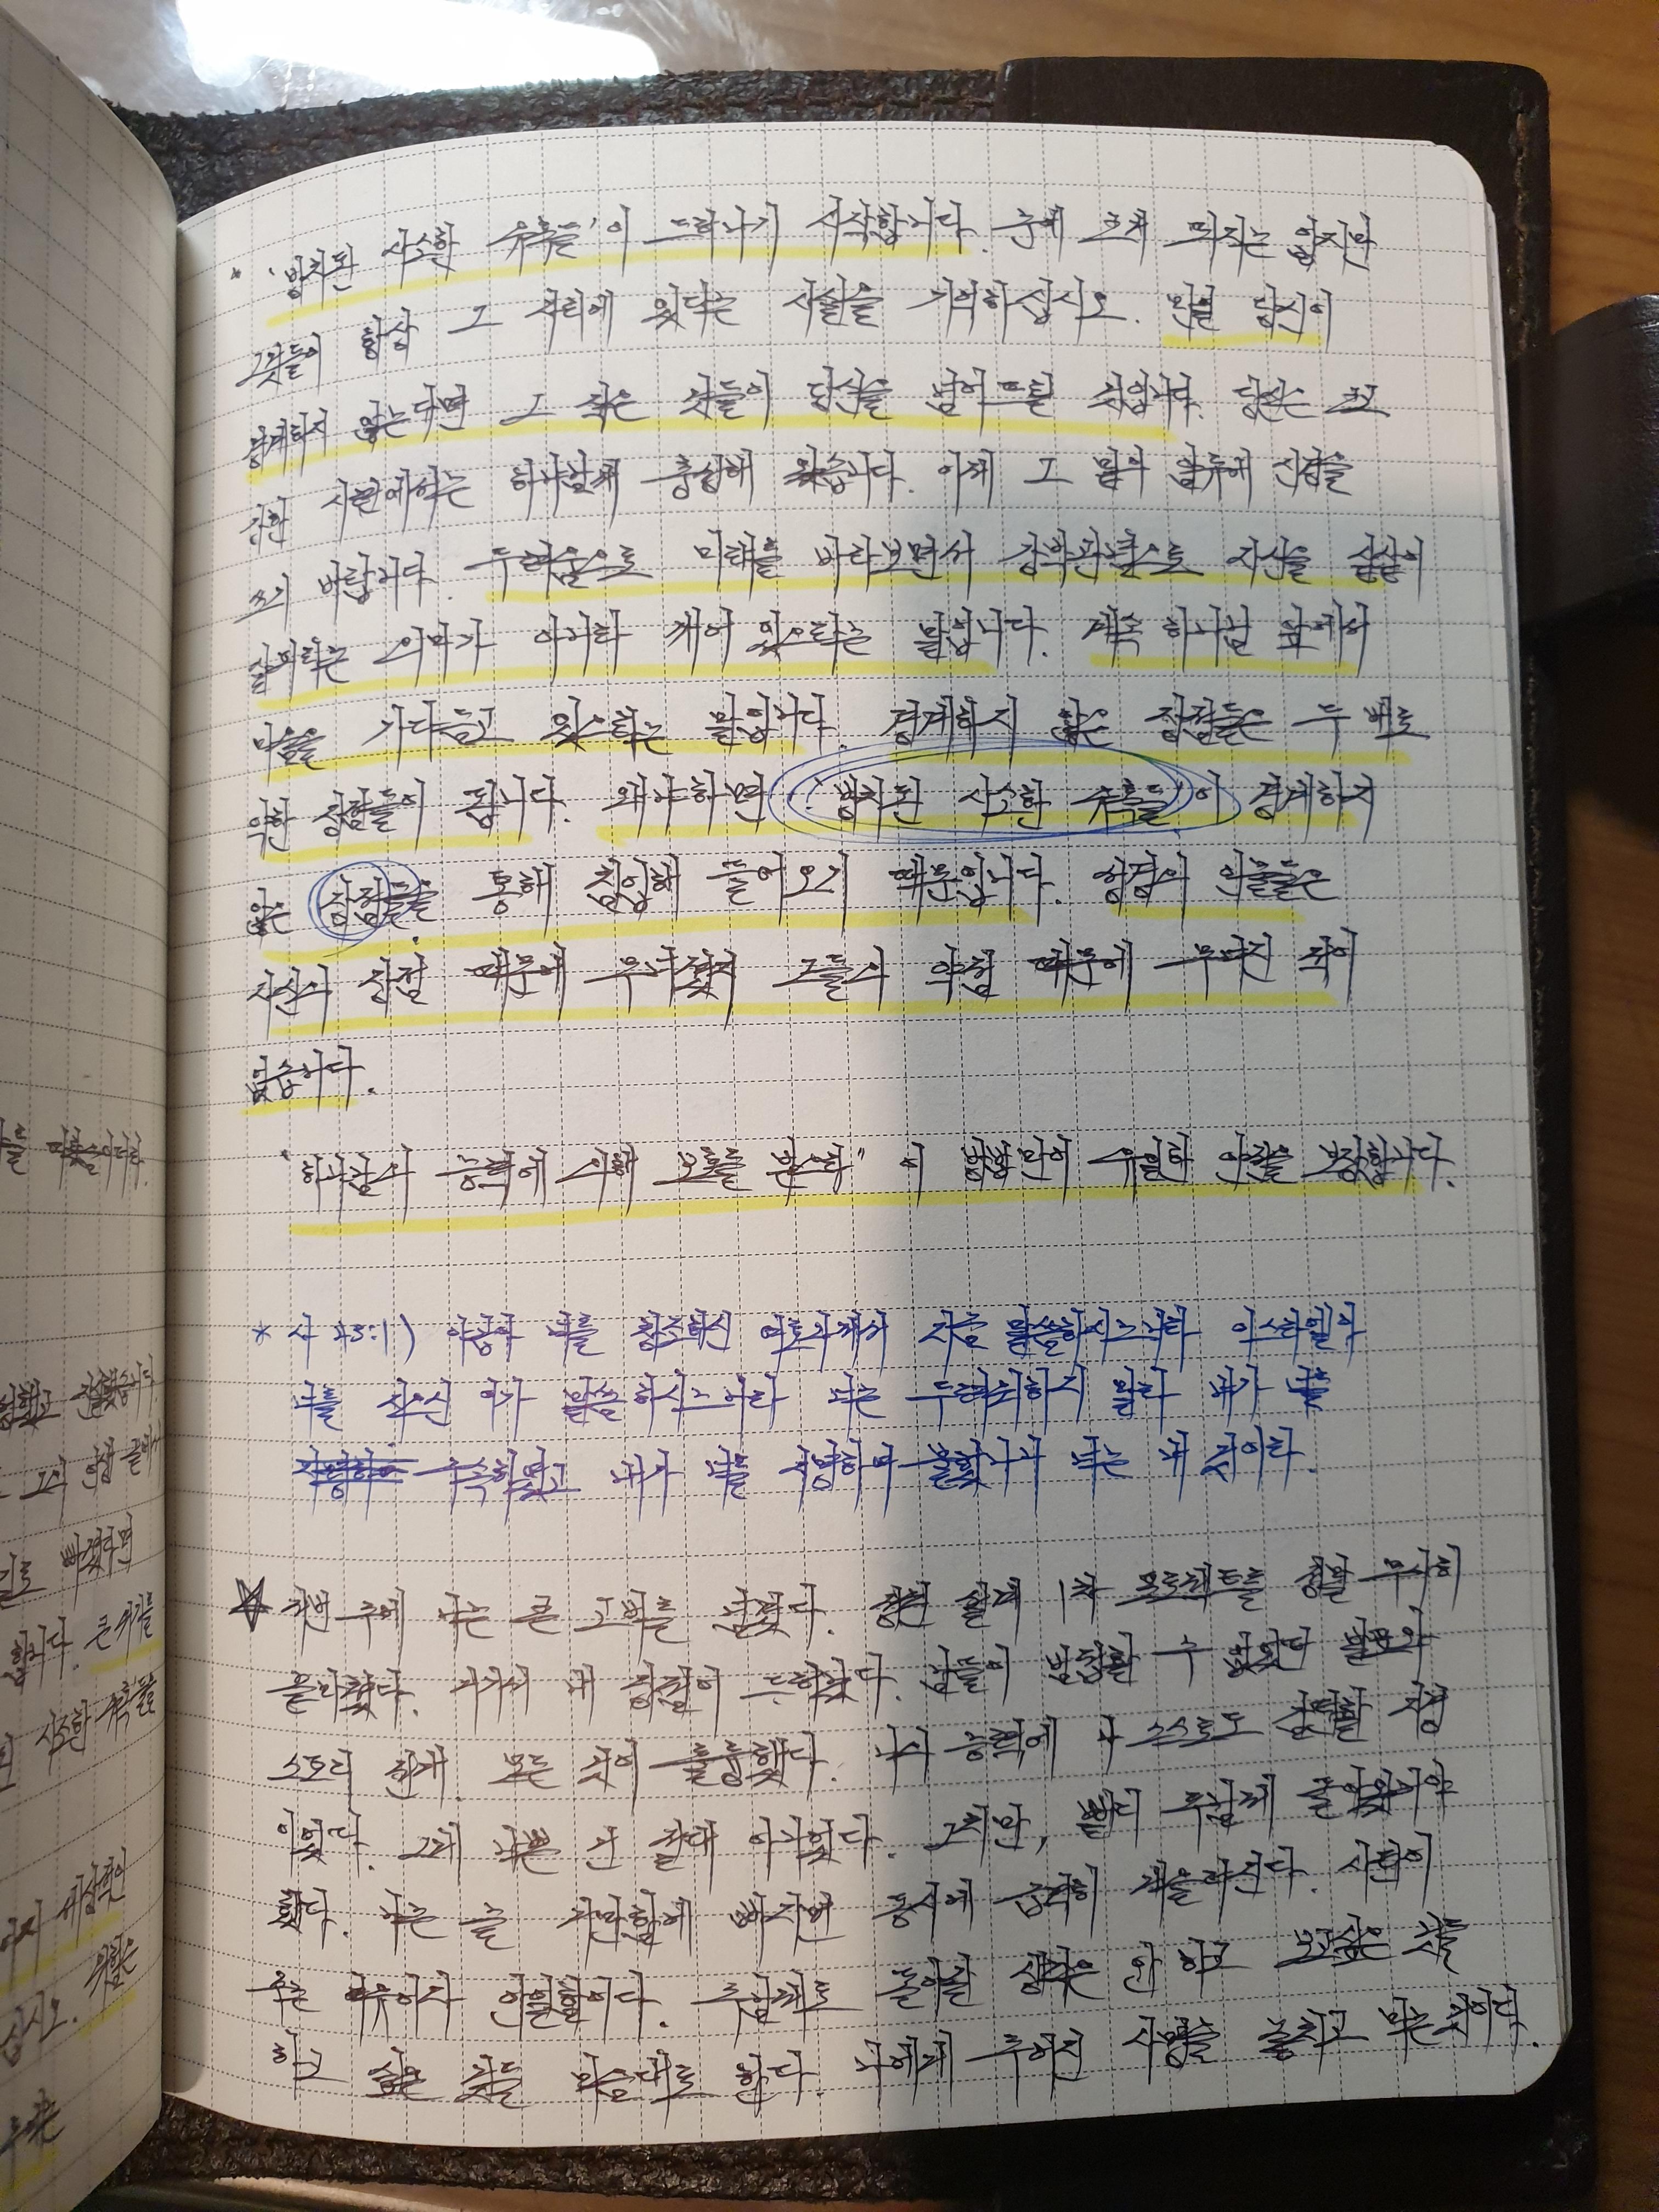 * '방치된 사소한 유혹들'이 드러나기 시작합니다. 눈에 크게 띄지는 않지만
그것들이 항상 그 자리에 있다는 사실을 기억하십시오. 만일 당신이
경계하지 않는다면 그 작은 것들이 당신을 넘어뜨릴 것입니다. 당신은 크고
강한 시련에서는 하나님께 충성해 왔습니다. 이제 그 밑의 암류에 신경을
쓰기 바랍니다. 두려움으로 미래를 바라보면서 강박관념으로 자신을 샅샅이
살피라는 의미가 아니라 깨어 있으라는 말입니다. 계속 하나님 앞에서
마음을 가다듬고 있으라는 말입니다. 경계하지 않은 장점들은 두 배로
약한 장점들이 됩니다. 왜냐하면 '방치된 사소한 유혹들'이 경계하지
않은 장점들을 통해 침입해 들어오기 때문입니다. 성경의 인물들은
자신의 장점 때문에 무너졌지 그들의 약점 때문에 무너진 적이
없습니다.
"하나님의 능력에 의해 보호를 받으라"이 방법만이 유일한 안전을 보장합니다.
* 사 43:1) 야곱아 너를 창조하신 여호와께서 지금 말씀하시느니라 이스라엘아
너를 지으신 이가 말씀하시느니라 너는 두려워하지 말라 내가 너를
구속하였고 내가 너를 지명하여 불렀나니 너는 내 것이라.
☆ 저번 주에 나는 큰 고비를 넘겼다. 설계 1차 프로젝트를 정말 무사히
올라갔다. 거기서 내 장점이 드러났다. 남들이 범접할 수 없었던 발표와
스토리 전개. 모든 것이 훌륭했다. 나의 능력에 나 스스로도 감탄할 지경
이었다. 그게 나쁜 건 절대 아니었다. 그치만, 빨리 주님께 돌아왔어야
했다. 나는 늘 자만함에 빠지면 동시에 급격히 게을러진다. 사탄이
주는 여유이자 안일함이다. 주님께로 돌아갈 생각은 안 하고 보고싶은 것들
하고 싶은 것들 마음대로 한다. 나에게 주어진 사명을 놓치고 마는 것이다.